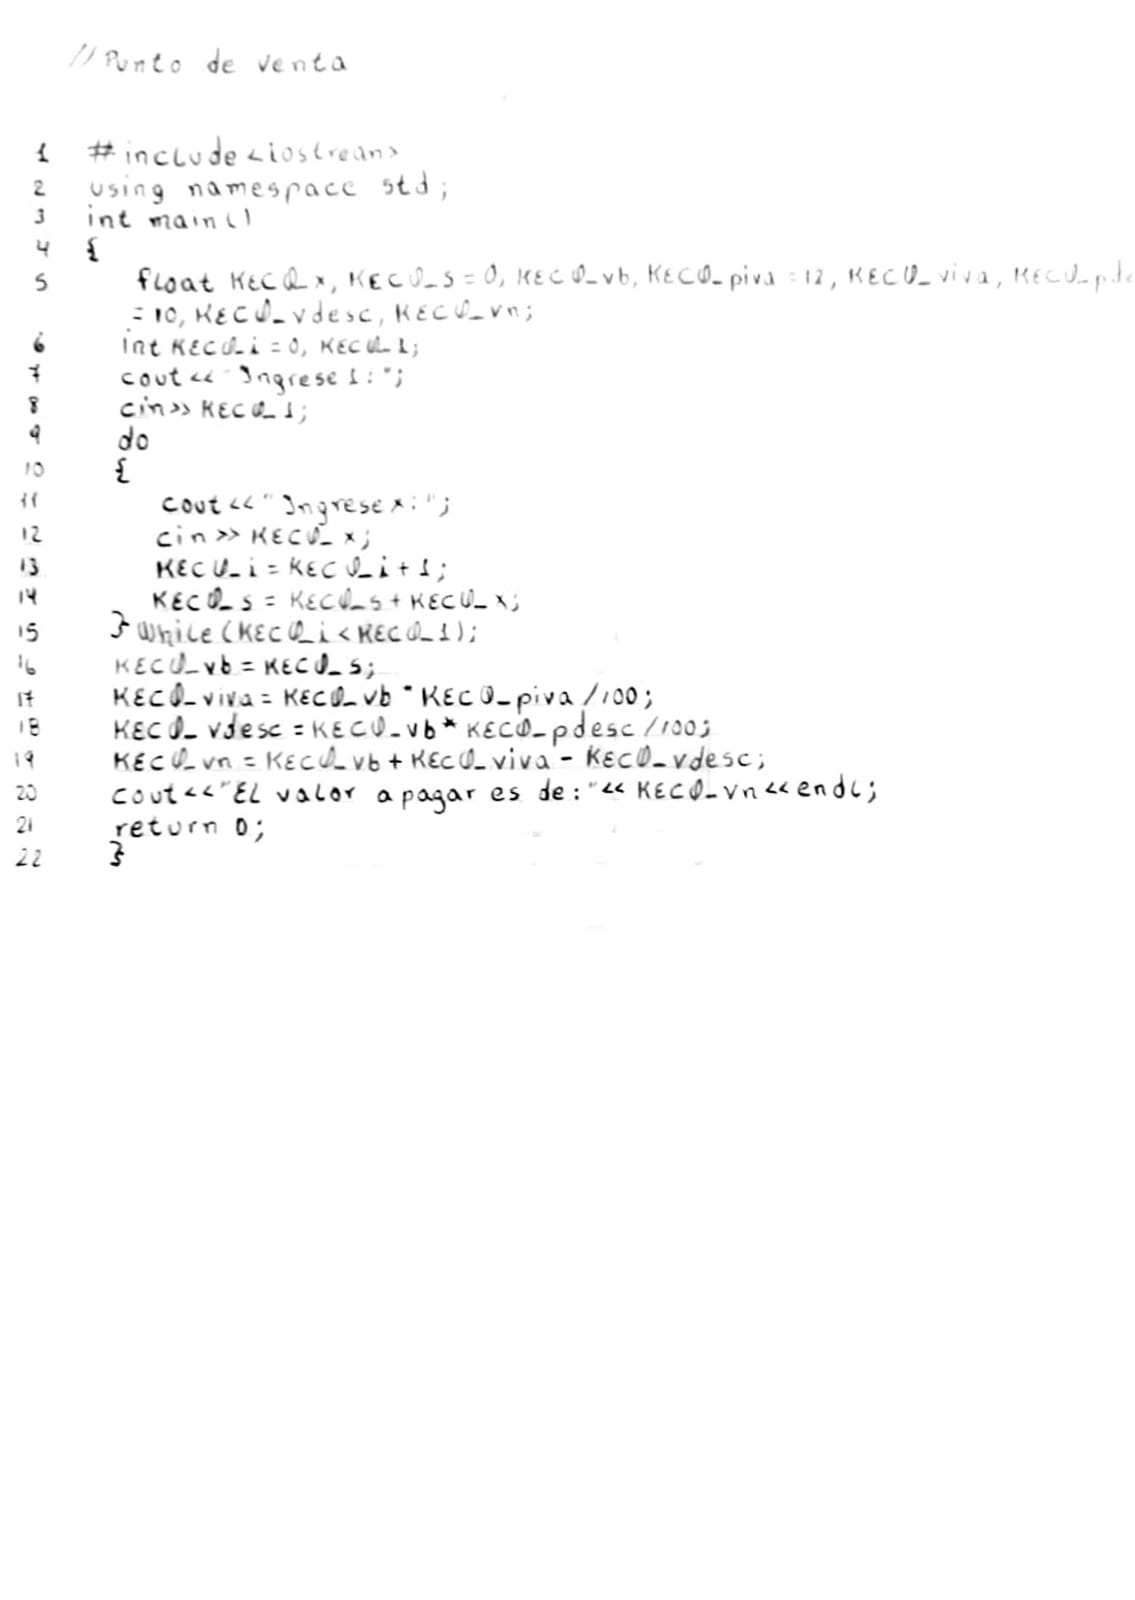 //Punto de venta
1 #include<iostream>
2 using namespace std;
3 int main()
4 {
5 float KECQ_x, KECQ_s=0, KECQ_vb, KECQ_piva=12, KECQ_viva, KECQ_pde
=10, KECQ_vdesc, KECQ_vn;
6 int KECQ_i=0, KECQ_1;
7 cout<<"Ingrese 1:";
8 cin>> KECQ_1;
9 do
10 {
11 cout<<"Ingrese x:";
12 cin>> KECQ_x;
13 KECQ_i = KECQ_i+1;
14 KECQ_s = KECQ_s+KECQ_x;
15 } While (KECQ_i < KECQ_1);
16 KECQ_vb = KECQ_s;
17 KECQ_viva = KECQ_vb * KECQ_piva /100;
18 KECQ_vdesc = KECQ_vb* KECQ_pdesc /100;
19 KECQ_vn = KECQ_vb + KECQ_viva - KECQ_vdesc;
20 cout<<"El valor a pagar es de:"<< KECQ_vn<<endl;
21 return 0;
22 }